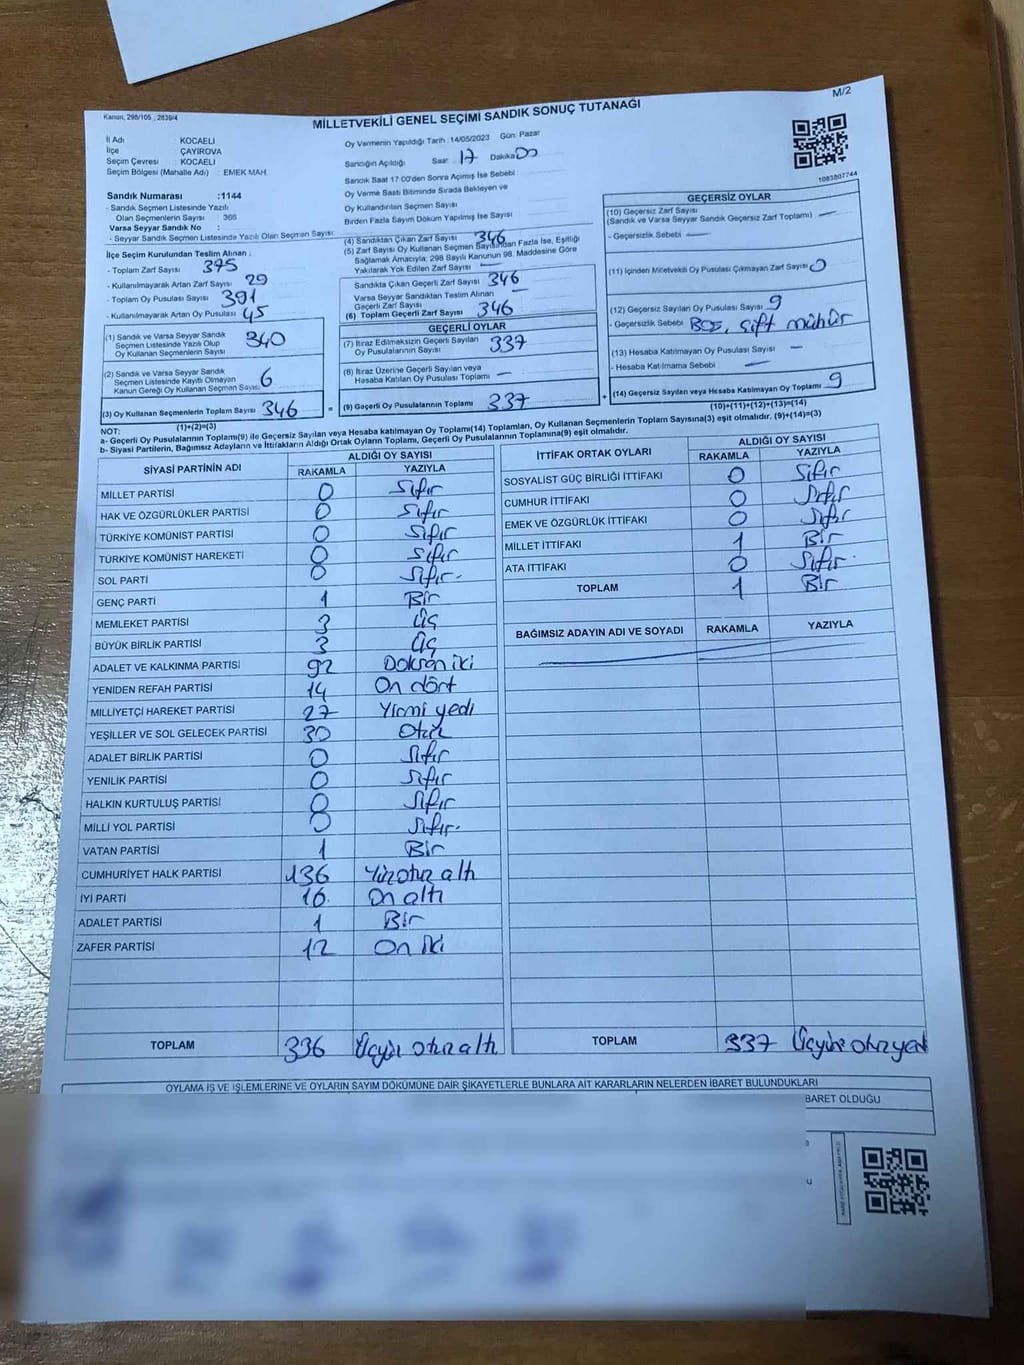 Kanun, 298/105 , 2839/4
M/2
MİLLETVEKİLİ GENEL SEÇİMİ SANDIK SONUÇ TUTANAĞI
İl Adı : KOCAELİ
İlçe : ÇAYIROVA
Seçim Çevresi : KOCAELİ
Seçim Bölgesi (Mahalle Adı) : EMEK MAH.
Sandık Numarası :1144
- Sandık Seçmen Listesinde Yazılı
Olan Seçmenlerin Sayısı : 366
Varsa Seyyar Sandık No :
- Seyyar Sandık Seçmen Listesinde Yazılı Olan Seçmen Sayısı:
İlçe Seçim Kurulundan Teslim Alınan :
- Toplam Zarf Sayısı 375
- Kullanılmayarak Artan Zarf Sayısı 29
- Toplam Oy Pusulası Sayısı 391
- Kullanılmayarak Artan Oy Pusulası 45
(1) Sandık ve Varsa Seyyar Sandık
Seçmen Listesinde Yazılı Olup
Oy Kullanan Seçmenlerin Sayısı 340
(2) Sandık ve Varsa Seyyar Sandık
Seçmen Listesinde Kayıtlı Olmayan
Kanun Gereği Oy Kullanan Seçmen Sayısı 6
(3) Oy Kullanan Seçmenlerin Toplam Sayısı 346
(1)+(2)=(3)
Oy Vermenin Yapıldığı Tarih :14/05/2023 Gün: Pazar
Sandığın Açıldığı Saat 17 Dakika 00
Sandık Saat 17:00'den Sonra Açılmış İse Sebebi
Oy Verme Saati Bitiminde Sırada Bekleyen ve
Oy Kullandırılan Seçmen Sayısı
Birden Fazla Sayım Döküm Yapılmış İse Sayısı
(4) Sandıktan Çıkan Zarf Sayısı 346
(5) Zarf Sayısı Oy Kullanan Seçmen Sayısından Fazla İse, Eşitliği
Sağlamak Amacıyla; 298 Sayılı Kanunun 98. Maddesine Göre
Yakılarak Yok Edilen Zarf Sayısı —
Sandıkta Çıkan Geçerli Zarf Sayısı 346
Varsa Seyyar Sandıktan Teslim Alınan
Geçerli Zarf Sayısı —
(6) Toplam Geçerli Zarf Sayısı 346
GEÇERLİ OYLAR
(7) İtiraz Edilmeksizin Geçerli Sayılan
Oy Pusulalarının Sayısı 337
(8) İtiraz Üzerine Geçerli Sayılan veya
Hesaba Katılan Oy Pusulası Toplamı —
= (9) Geçerli Oy Pusulalarının Toplamı 337
1083807744
GEÇERSİZ OYLAR
(10) Geçersiz Zarf Sayısı
(Sandık ve Varsa Seyyar Sandık Geçersiz Zarf Toplamı) —
- Geçersizlik Sebebi —
(11) İçinden Milletvekili Oy Pusulası Çıkmayan Zarf Sayısı 0
(12) Geçersiz Sayılan Oy Pusulası Sayısı 9
- Geçersizlik Sebebi Boş, çift mühür
(13) Hesaba Katılmayan Oy Pusulası Sayısı —
- Hesaba Katılmama Sebebi —
+ (14) Geçersiz Sayılan veya Hesaba Katılmayan Oy Toplamı 9
(10)+(11)+(12)+(13)=(14)
NOT:
a- Geçerli Oy Pusulalarının Toplamı(9) ile Geçersiz Sayılan veya Hesaba katılmayan Oy Toplamı(14) Toplamları, Oy Kullanan Seçmenlerin Toplam Sayısına(3) eşit olmalıdır. (9)+(14)=(3)
b- Siyasi Partilerin, Bağımsız Adayların ve İttifakların Aldığı Ortak Oyların Toplamı, Geçerli Oy Pusulalarının Toplamına(9) eşit olmalıdır.
SİYASİ PARTİNİN ADI ALDIĞI OY SAYISI
RAKAMLA YAZIYLA
MİLLET PARTİSİ 0 Sıfır
HAK VE ÖZGÜRLÜKLER PARTİSİ 0 Sıfır
TÜRKİYE KOMÜNİST PARTİSİ 0 Sıfır
TÜRKİYE KOMÜNİST HAREKETİ 0 Sıfır
SOL PARTİ 0 Sıfır.
GENÇ PARTİ 1 Bir
MEMLEKET PARTİSİ 3 Üç
BÜYÜK BİRLİK PARTİSİ 3 Üç
ADALET VE KALKINMA PARTİSİ 92 Doksan iki
YENİDEN REFAH PARTİSİ 14 On dört
MİLLİYETÇİ HAREKET PARTİSİ 27 Yirmi yedi
YEŞİLLER VE SOL GELECEK PARTİSİ 30 Otuz
ADALET BİRLİK PARTİSİ 0 Sıfır
YENİLİK PARTİSİ 0 Sıfır
HALKIN KURTULUŞ PARTİSİ 0 Sıfır
MİLLİ YOL PARTİSİ 0 Sıfır.
VATAN PARTİSİ 1 Bir
CUMHURİYET HALK PARTİSİ 136 Yüzotuz altı
İYİ PARTİ 16 On altı
ADALET PARTİSİ 1 Bir
ZAFER PARTİSİ 12 On iki
TOPLAM 336 Üçyüz otuz altı
İTTİFAK ORTAK OYLARI ALDIĞI OY SAYISI
RAKAMLA YAZIYLA
SOSYALİST GÜÇ BİRLİĞİ İTTİFAKI 0 Sıfır
CUMHUR İTTİFAKI 0 Sıfır
EMEK VE ÖZGÜRLÜK İTTİFAKI 0 Sıfır
MİLLET İTTİFAKI 1 Bir
ATA İTTİFAKI 0 Sıfır.
TOPLAM 1 Bir
BAĞIMSIZ ADAYIN ADI VE SOYADI RAKAMLA YAZIYLA
TOPLAM 337 Üçyüz otuz yedi
OYLAMA İŞ VE İŞLEMLERİNE VE OYLARIN SAYIM DÖKÜMÜNE DAİR ŞİKAYETLERLE BUNLARA AİT KARARLARIN NELERDEN İBARET BULUNDUKLARI
BARET OLDUĞU